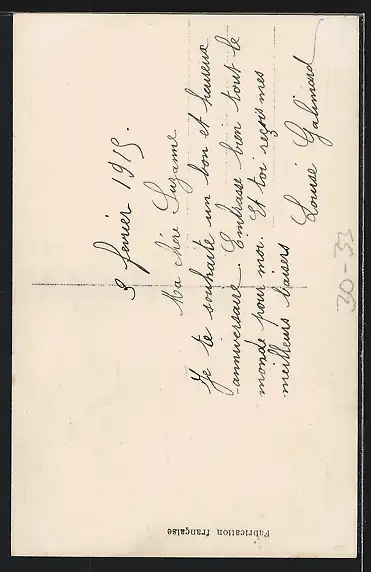 3 fevrier 1915.
Ma chére Suzanne
Je te souhaite un bon et heureux
anniversaire. Embrasse bien tout le
monde pour moi. Et toi reçois mes
meilleurs baisers
Louise Galimard
30-33
Fabrication française